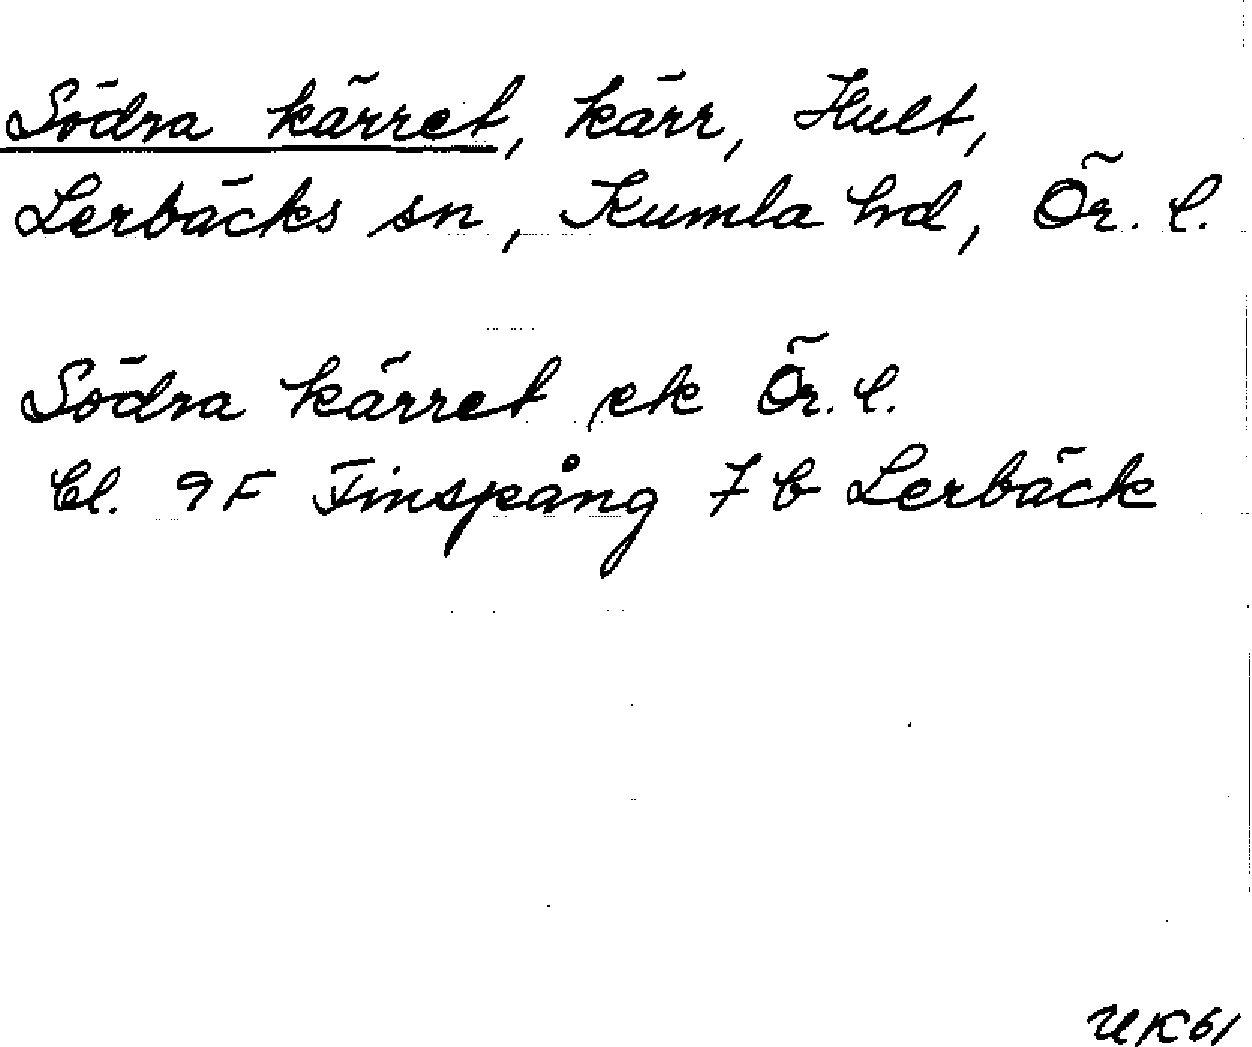 Södra kärret, kärr, Hult,
Lerbäcks sn, Kumla hd, Ör. l.
Södra kärret ek Ör. l.
Bl. 9F Finspång 7b Lerbäck
UK61